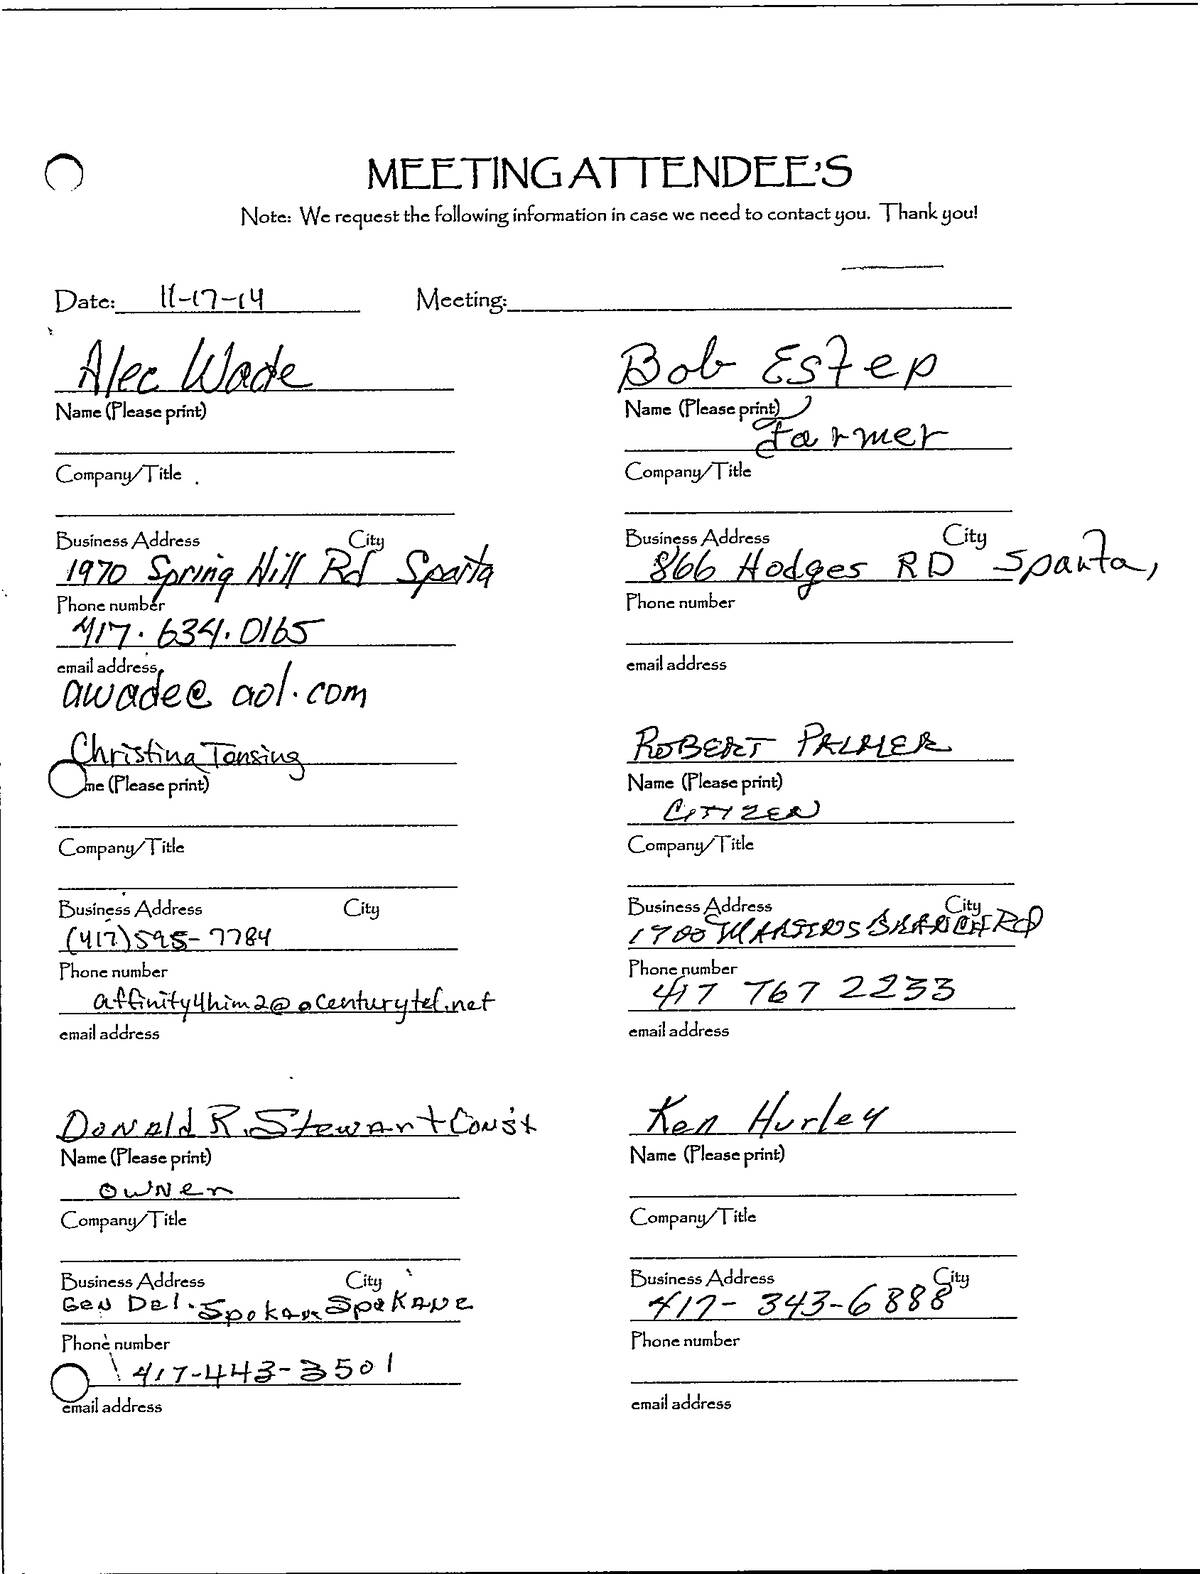 MEETING ATTENDEE'S
Note: We request the following information in case we need to contact you. Thank you!
Date: 11-17-14 Meeting:
Alec Wade
Name (Please print)
Company/Title
Business Address City
1970 Spring Hill Rd Sparta
Phone number
417.634.0165
email address
awade@aol.com
Bob Estep
Name (Please print)
farmer
Company/Title
Business Address City
866 Hodges RD Sparta,
Phone number
email address
Christina Tonsing
me (Please print)
Company/Title
Business Address City
(417) 595-7784
Phone number
affinity4him2@centurytel.net
email address
ROBERT PALMER
Name (Please print)
CITIZEN
Company/Title
Business Address City
1700 BRANCH RD
Phone number
417 767 2233
email address
Donald R. Stewart Const
Name (Please print)
owner
Company/Title
Business Address City
Gen Del. Spokane Spokane
Phone number
417-443-3501
email address
Ken Hurley
Name (Please print)
Company/Title
Business Address City
417-343-6888
Phone number
email address